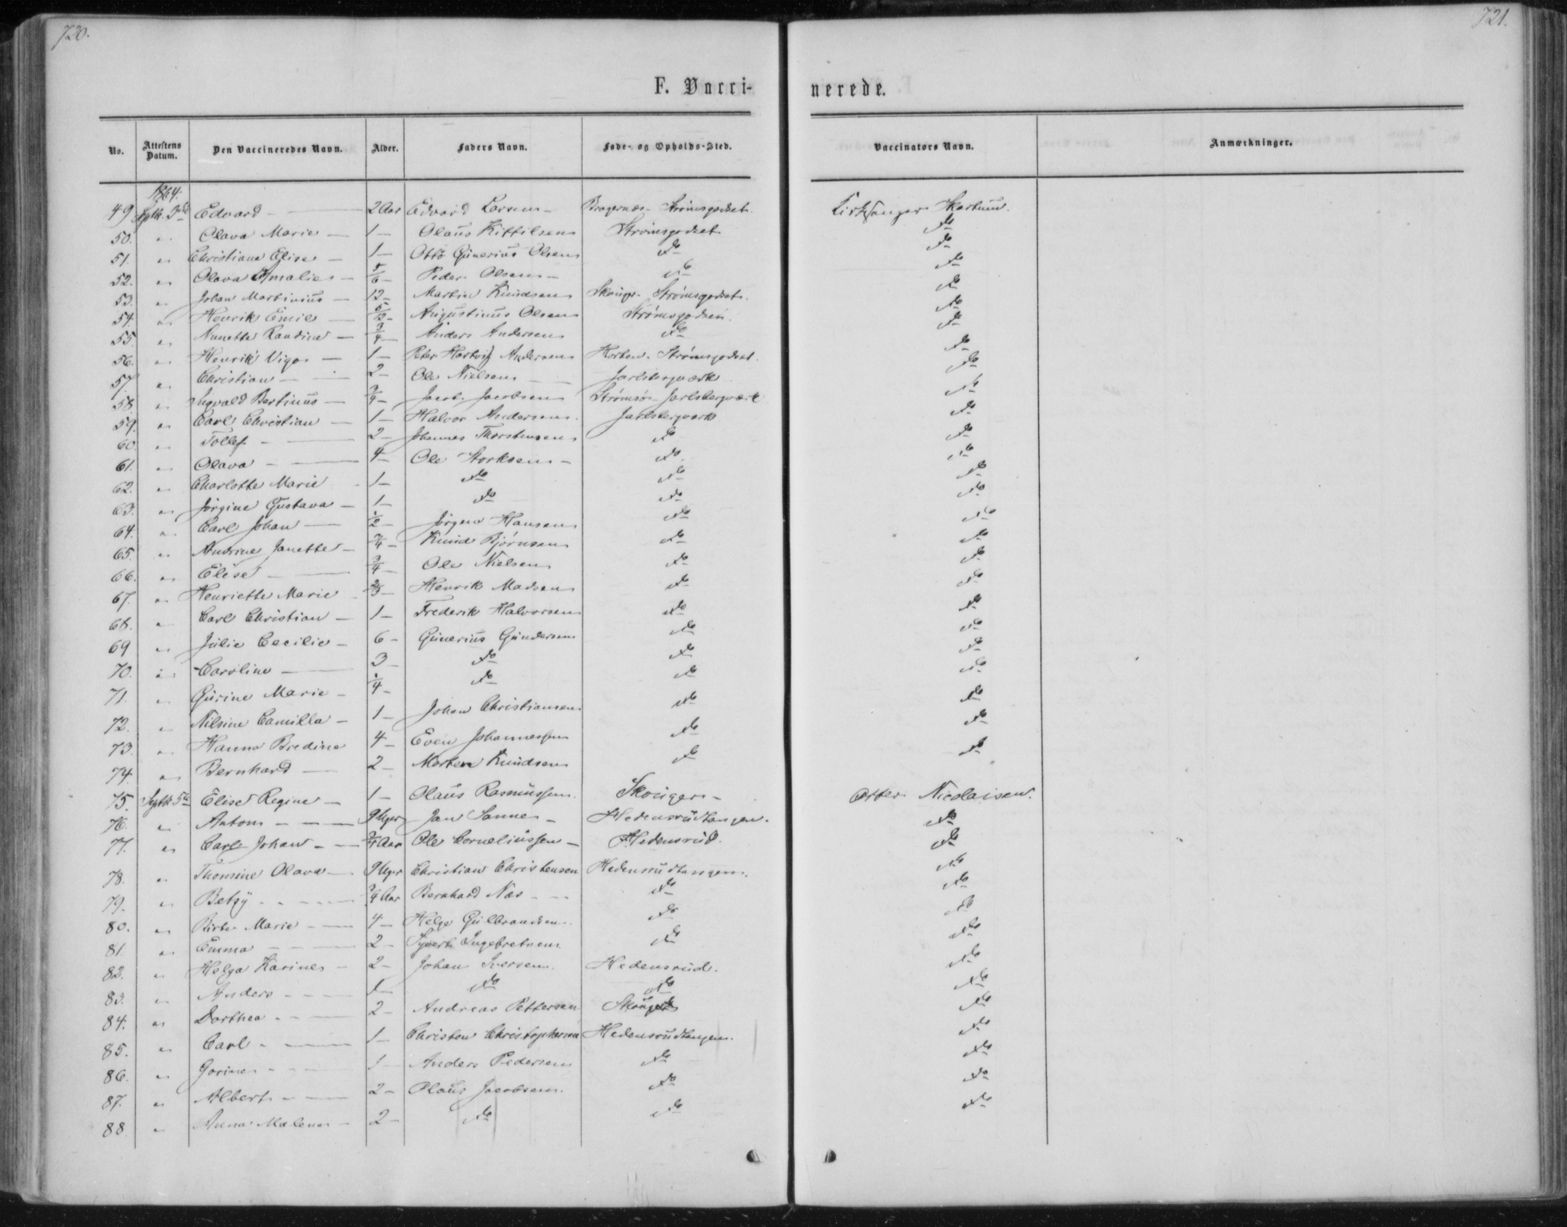 720.
721.
F. Vacci-
nerede.
No. Attestens Datum. Den Vaccineredes Navn. Alder. Faders Navn. Føde- og Opholds-Sted. Vaccinators Navn. Anmærkninger.
1864.
49 Septb. Edvard — 2 Aar Edvard Larsen — Bragernæs. Strømsgodset Kirksanger
50. " Olava Marie — 1 — Olaus Kittilsen Strømsgodset do
51. " Christiane Elise — 1 — Otto Gunerius Olsen do do
52. " Olava Amalie — Peder Olsen — do do
53. " Johan Martinius — 12 — Martin Knudsen Skouger. Strømsgodset. do
54 " Henrik Emil — Augustinus Olsen Strømsgodset. do
55 " Nunette Randine — 3/4 — Anders Andersen do do
56. " Henrik Vigo — 1 — Peter Hartvig Andersen Horten. Strømsgodset. do
57. " Christian — 2 — Ole Nielsen Jarlsbergværk do
58. " Ingvald Bertinus — Jacob Jacobsen Strømsø. Jarlsbergværk do
59. " Carl Christian — 1 — Halvor Andersen. Jarlsbergværk do
60. " Tollef — 2 — Johannes Thorstensen do do
61. " Olava — 4 — Ole — do. do
62. " Charlotte Marie 1 — do do do
63. " Jørgine Gustava — 1 — do do do
64. " Carl Johan — 1/2 — Jørgen Hansen do do
65. " Andrine Janette — 3/4 — Knud Bjørnsen do do
66. " Elise — 3/4 — Ole Nielsen do do
67. " Henriette Marie Henrik Madsen do do
68. " Carl Christian — 1 — Frederik Halvorsen do do
69 " Julie Cecilie — 6 — Gunerius Gundersen do do
70. " Caroline — 3 — do do do
71. " Gurine Marie — 1/4 — do do do
72. " Nilsine Camilla — 1 — Johan Christiansen do do
73. " Hanna Bredine 4 — Even Johannessen do do
74. " Bernhard — 2 — Morten Knudsen do do
75. Septb. 5te Elise Regine — 1 — Olaus Rasmussen. Skouger — Otter Nicolaisen.
76. " Anton — 9 Mgr Jan Sanne — Hedensrudtangen. do
77. " Carl Johan — 3/4 Aar Ole Corneliussen — Hedensrud. do
78. " Thomine Olava — 9 Mgr Christian Christensen Hedensrudtangen. do
79. " Betzy — 3/4 Aar Bernhard Næs — do do
80. " Birte Marie — 4 — Helge Gulbrandsen do do
81 " Emma — 2 — Syvert Ingebretsen do do
82. " Helga Karine — 2 — Johan Iversen Hedensrud. do
83. " Anders — 1 — do do do
84. " Dorthea — 2 — Andreas Pettersen Skouger do
85. " Carl — 1 — Christen Christophersen Hedensrudtangen. do
86. " Gorine — 1 — Anders Pedersen do do
87. " Albert — 2 — Olaus Jacobsen do do
88 " Anna Malene — 2 — do do do